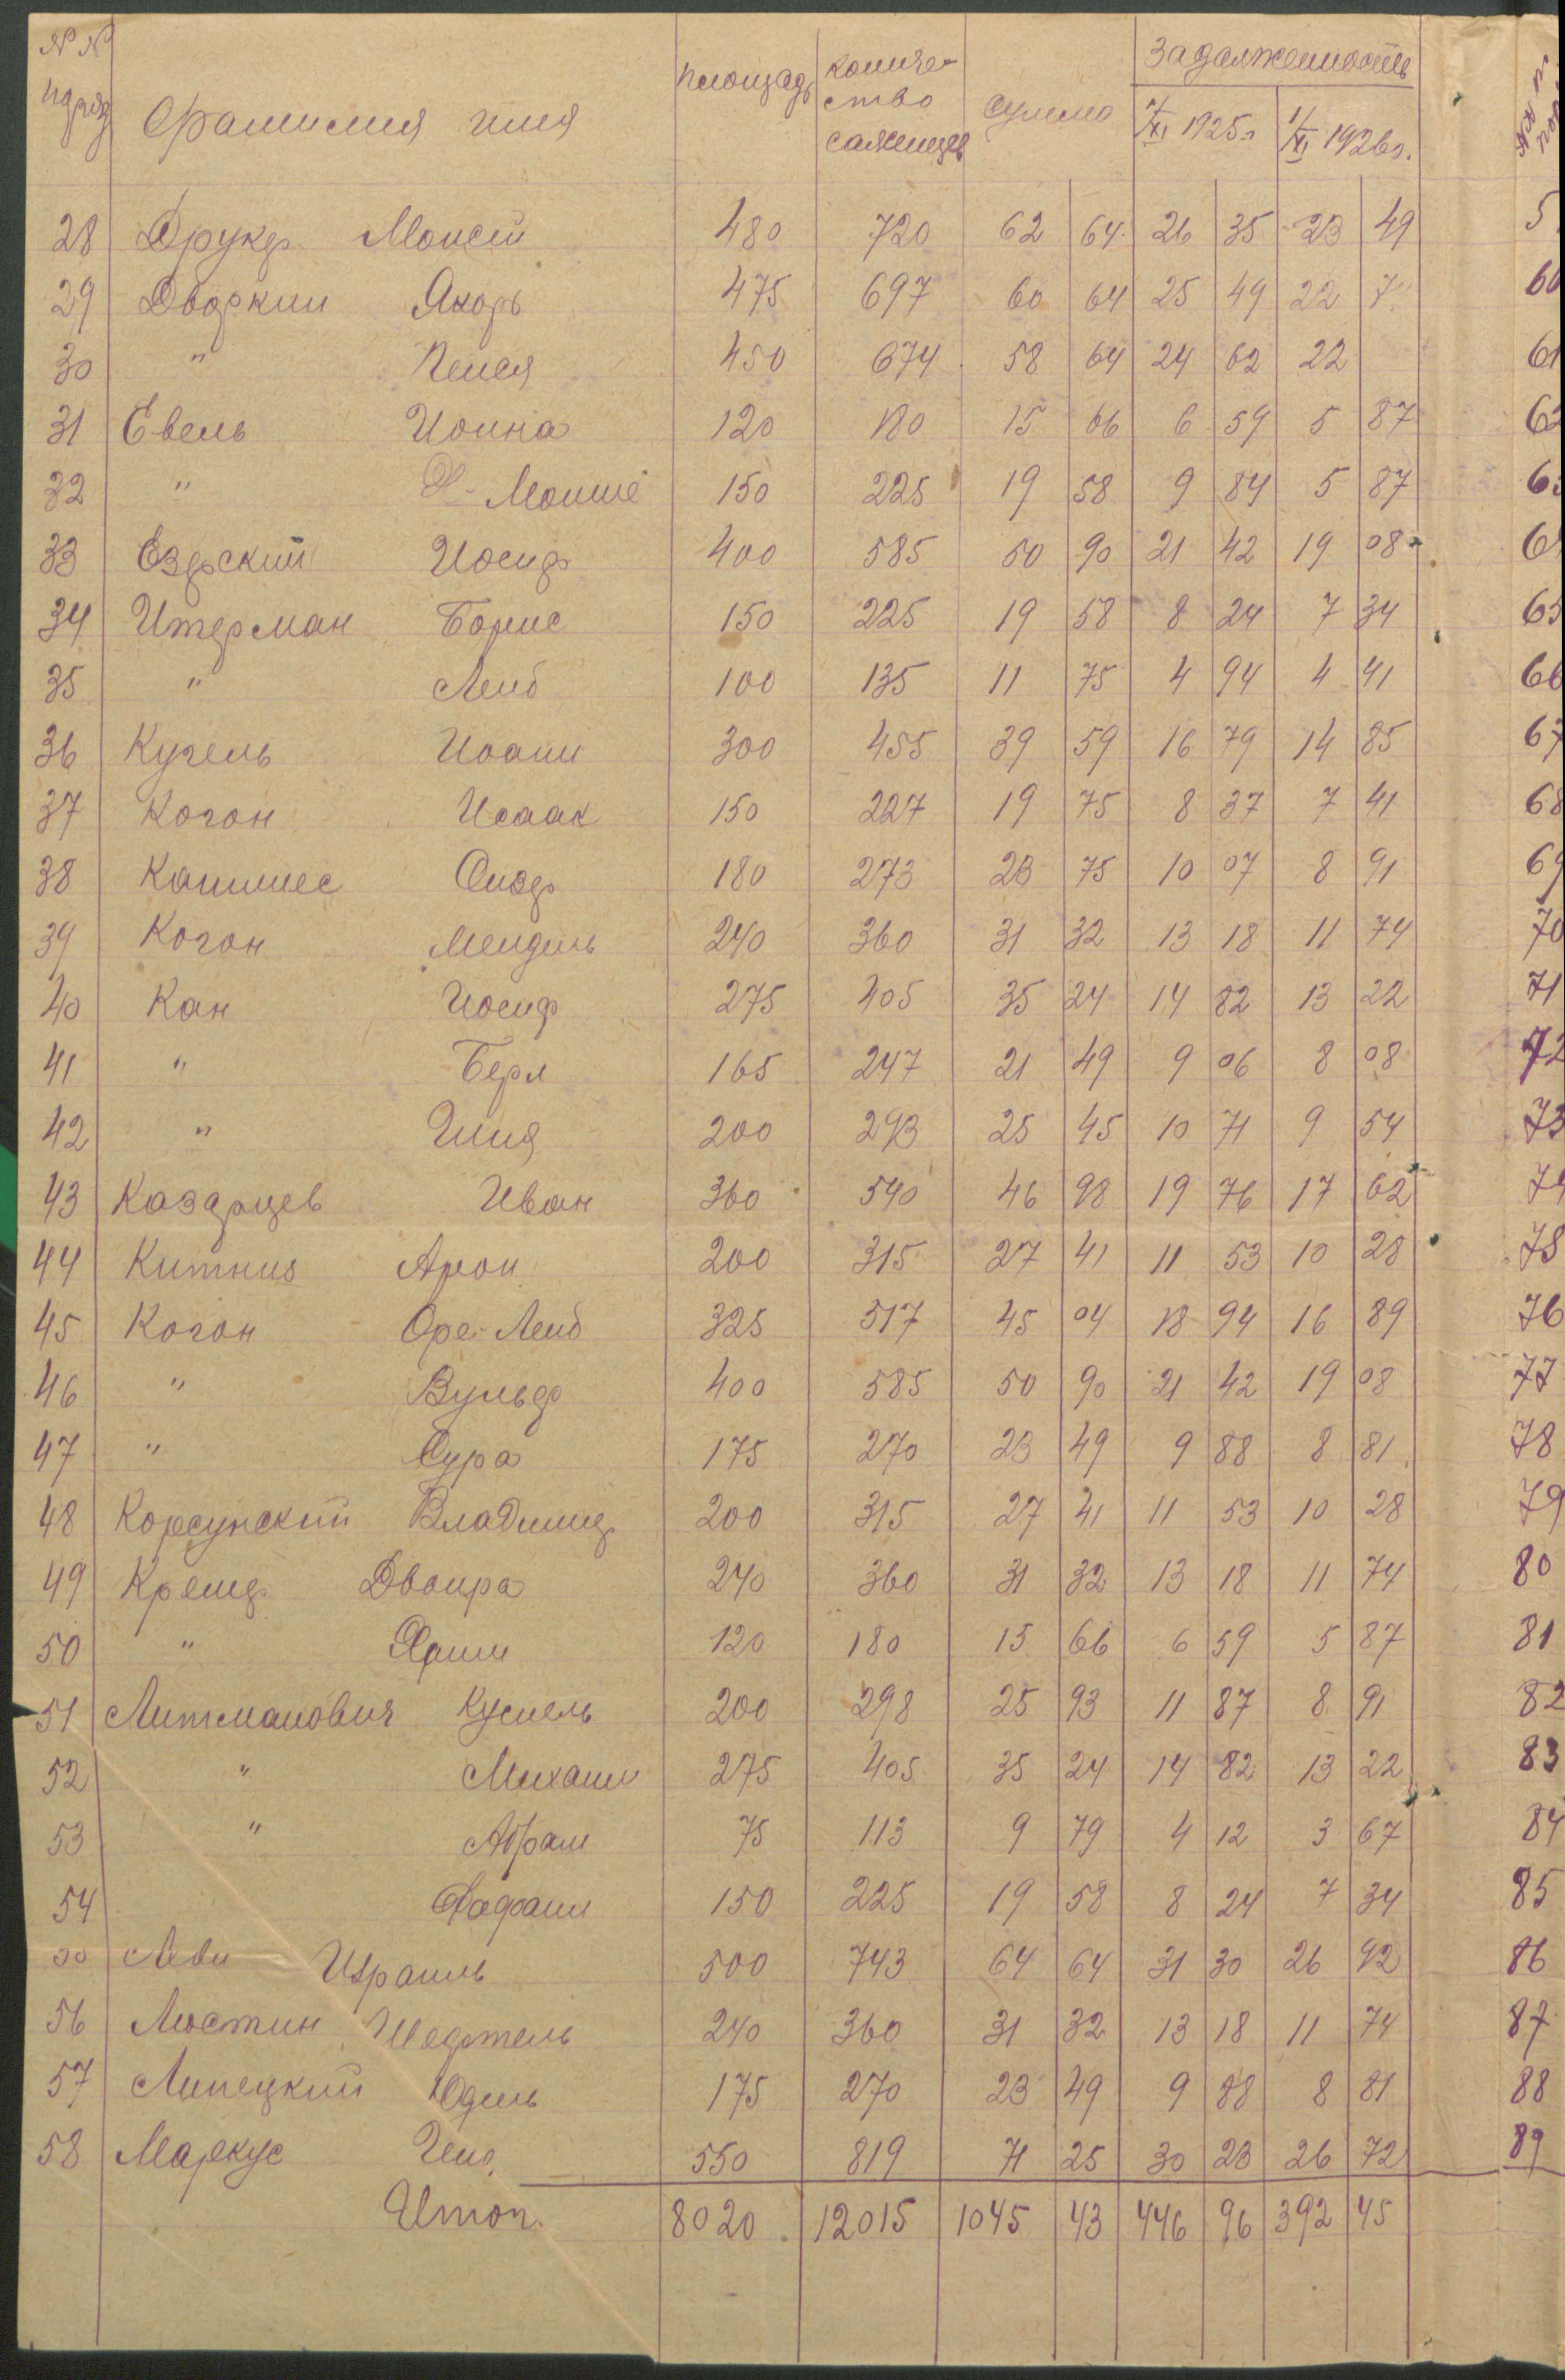 №№ Площадь Количе- Сумма Задолженность
пород Фамилия имя ство 1/XI 1925г 1/XI 1926г.
саженцев
28 Друкер Моисей 480 720 62 64 26 35 23 49 5
29 Дворкин Якорь 475 697 60 64 25 49 22 7 60
30 " Пейся 450 674 58 64 24 62 22 61
31 Евель Иоина 120 180 15 66 6 59 5 87 62
32 " Моише 150 225 19 58 9 84 5 87 63
33 Ездрский Иосиф 400 585 50 90 21 42 19 08 6
34 Итерман Борис 150 225 19 58 8 24 7 34 65
35 " Лейб 100 135 11 75 4 94 4 41 66
36 Кугель 300 455 39 59 16 79 14 85 67
37 Когон Исаак 150 227 19 75 8 37 7 41 68
38 180 273 23 75 10 07 8 91 69
39 Когон Мендель 240 360 31 32 13 18 11 74 70
40 Кан Иосиф 275 405 35 24 14 82 13 22 71
41 " Берл 165 247 21 49 9 06 8 08 72
42 " 200 293 25 45 10 71 9 54 73
43 Казарцев Иван 360 540 46 98 19 76 17 62 74
44 Китнис Арон 200 315 27 41 11 53 10 28 75
45 Когон Оре-Лейб 325 517 45 04 18 94 16 89 76
46 " Вульф 400 585 50 90 21 42 19 08 77
47 " Сура 175 270 23 49 9 88 8 81 78
48 Корсунский Владимир 200 315 27 41 11 53 10 28 79
49 Двоира 240 360 31 32 13 18 11 74 80
50 " 120 180 15 66 6 59 5 87 81
51 Литманович Кусиель 200 298 25 93 11 87 8 91 82
52 " Михаил 275 405 35 24 14 82 13 22 83
53 " Абрам 75 113 9 79 4 12 3 67 84
54 Рафаил 150 225 19 58 8 24 7 34 85
55 Леви Израиль 500 743 64 64 31 30 26 92 86
56 Люстин Шефтель 240 360 31 32 13 18 11 74 87
57 Липецкий Юдель 175 270 23 49 9 88 8 81 88
58 Маркус 550 819 71 25 30 23 26 72 89
Итог. 8020 12015 1045 43 446 96 392 45